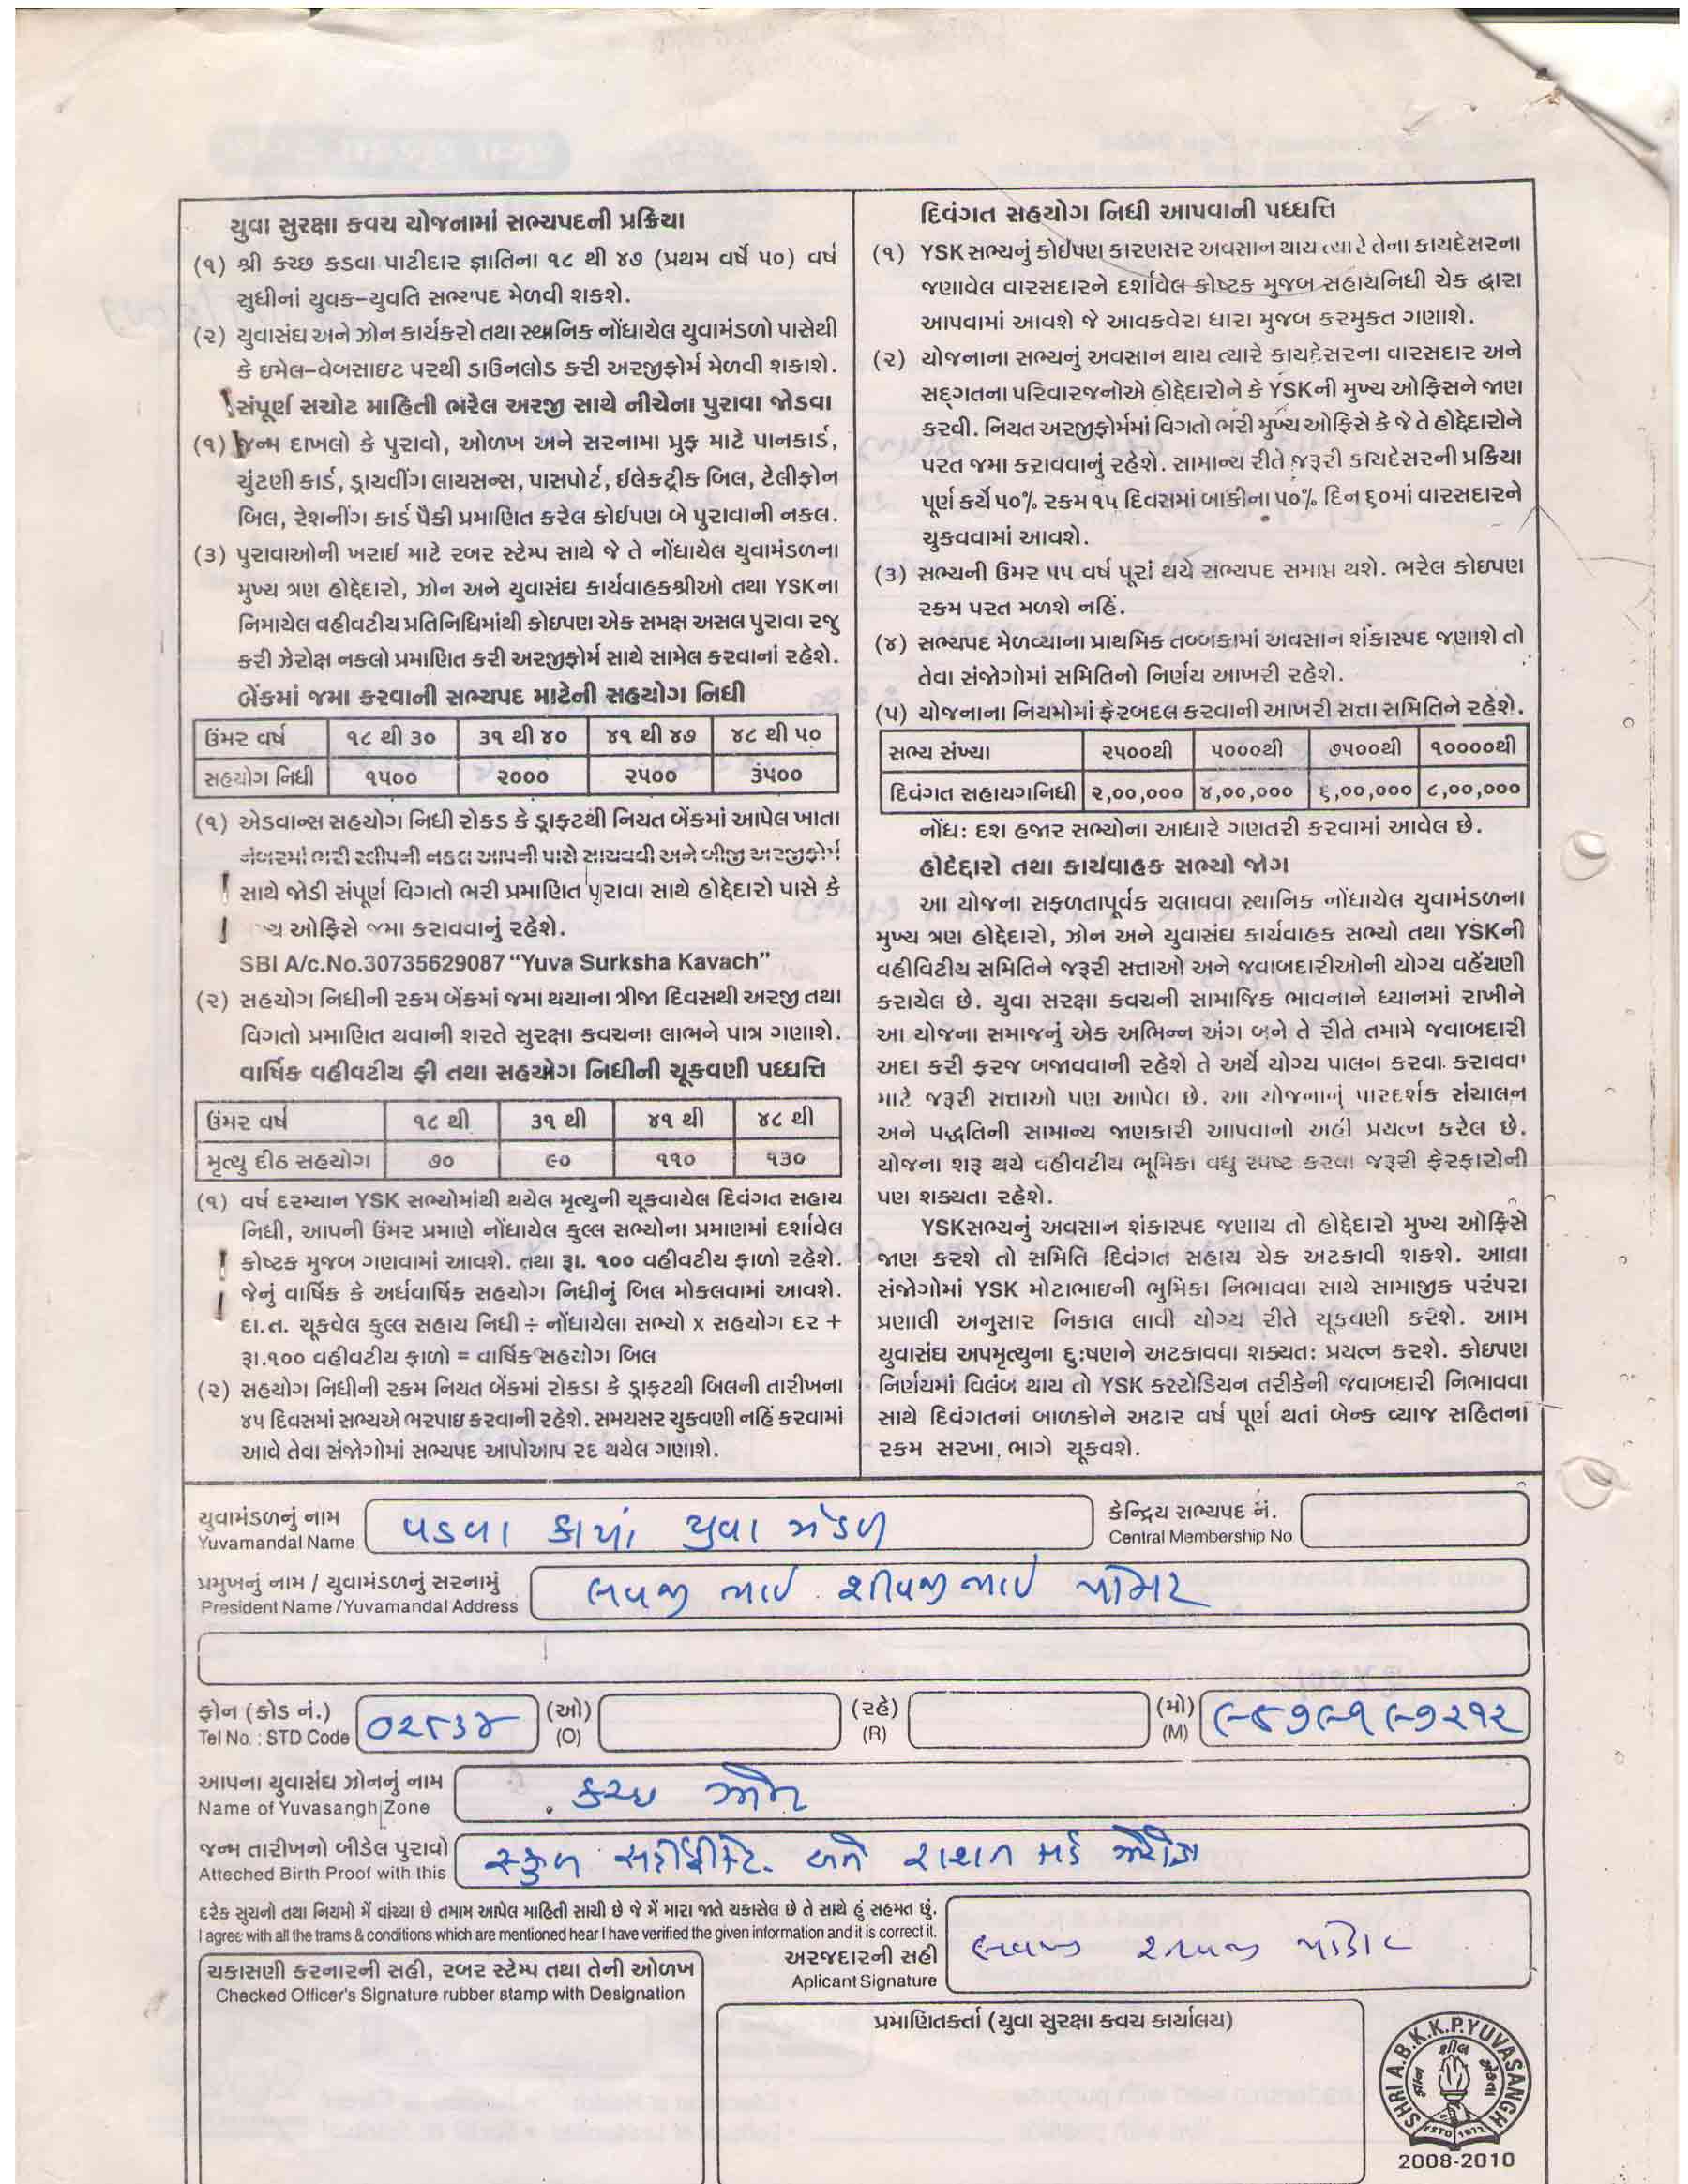 યુવા સુરક્ષા કવચ યોજનામાં સભ્યપદની પ્રક્રિયા
(૧) શ્રી કચ્છ કડવા પાટીદાર જ્ઞાતિના ૧૮ થી ૪૭ (પ્રથમ વર્ષે ૫૦) વર્ષ
સુધીનાં યુવક-યુવતિ સભ્યપદ મેળવી શકશે.
(૨) યુવાસંઘ અને ઝોન કાર્યકરો તથા સ્થાનિક નોંધાયેલ યુવામંડળો પાસેથી
કે ઇમેલ-વેબસાઇટ પરથી ડાઉનલોડ કરી અરજીફોર્મ મેળવી શકાશે.
સંપૂર્ણ સચોટ માહિતી ભરેલ અરજી સાથે નીચેના પુરાવા જોડવા
(૧) જન્મ દાખલો કે પુરાવો, ઓળખ અને સરનામા પ્રુફ માટે પાનકાર્ડ,
ચુંટણી કાર્ડ, ડ્રાયવીંગ લાયસન્સ, પાસપોર્ટ, ઈલેકટ્રીક બિલ, ટેલીફોન
બિલ, રેશનીંગ કાર્ડ પૈકી પ્રમાણિત કરેલ કોઈપણ બે પુરાવાની નકલ.
(૩) પુરાવાઓની ખરાઈ માટે રબર સ્ટેમ્પ સાથે જે તે નોંધાયેલ યુવામંડળના
મુખ્ય ત્રણ હોદ્દેદારો, ઝોન અને યુવાસંઘ કાર્યવાહકશ્રીઓ તથા YSKના
નિમાયેલ વહીવટીય પ્રતિનિધિમાંથી કોઇપણ એક સમક્ષ અસલ પુરાવા રજુ
કરી ઝેરોક્ષ નકલો પ્રમાણિત કરી અરજીફોર્મ સાથે સામેલ કરવાનાં રહેશે.
બેંકમાં જમા કરવાની સભ્યપદ માટેની સહયોગ નિધી
ઉંમર વર્ષ ૧૮ થી ૩૦ ૩૧ થી ૪૦ ૪૧ થી ૪૭ ૪૮ થી ૫૦
સહયોગ નિધી ૧૫૦૦ ૨૦૦૦ ૨૫૦૦ ૩૫૦૦
(૧) એડવાન્સ સહયોગ નિધી રોકડ કે ડ્રાફટથી નિયત બેંકમાં આપેલ ખાતા
નંબરમાં ભરી સ્લીપની નકલ આપની પાસે સાચવવી અને બીજી અરજીફોર્મ
સાથે જોડી સંપૂર્ણ વિગતો ભરી પ્રમાણિત પુરાવા સાથે હોદ્દેદારો પાસે કે
ઓફિસે જમા કરાવવાનું રહેશે.
SBI A/c.No.30735629087 “Yuva Surksha Kavach”
(૨) સહયોગ નિધીની રકમ બેંકમાં જમા થયાના ત્રીજા દિવસથી અરજી તથા
વિગતો પ્રમાણિત થવાની શરતે સુરક્ષા કવચના લાભને પાત્ર ગણાશે.
વાર્ષિક વહીવટીય ફી તથા સહયોગ નિધીની ચૂકવણી પધ્ધત્તિ
ઉંમર વર્ષ ૧૮ થી ૩૧ થી ૪૧ થી ૪૮ થી
મૃત્યુ દીઠ સહયોગ ૭૦ ૯૦ ૧૧૦ ૧૩૦
(૧) વર્ષ દરમ્યાન YSK સભ્યોમાંથી થયેલ મૃત્યુની ચૂકવાયેલ દિવંગત સહાય
નિધી, આપની ઉંમર પ્રમાણે નોંધાયેલ કુલ્લ સભ્યોના પ્રમાણમાં દર્શાવેલ
કોષ્ટક મુજબ ગણવામાં આવશે. તથા રૂા. ૧૦૦ વહીવટીય ફાળો રહેશે.
જેનું વાર્ષિક કે અર્ધવાર્ષિક સહયોગ નિધીનું બિલ મોકલવામાં આવશે.
દા.ત. ચૂકવેલ કુલ્લ સહાય નિધી ÷ નોંધાયેલા સભ્યો x સહયોગ દર +
રૂા.૧૦૦ વહીવટીય ફાળો = વાર્ષિક સહયોગ બિલ
(૨) સહયોગ નિધીની રકમ નિયત બેંકમાં રોકડા કે ડ્રાફટથી બિલની તારીખના
૪૫ દિવસમાં સભ્યએ ભરપાઇ કરવાની રહેશે. સમયસર ચુકવણી નહિં કરવામાં
આવે તેવા સંજોગોમાં સભ્યપદ આપોઆપ રદ થયેલ ગણાશે.
દિવંગત સહયોગ નિધી આપવાની પધ્ધત્તિ
(૧) YSK સભ્યનું કોઈપણ કારણસર અવસાન થાય ત્યારે તેના કાયદેસરના
જણાવેલ વારસદારને દર્શાવેલ કોષ્ટક મુજબ સહાયનિધી ચેક દ્વારા
આપવામાં આવશે જે આવકવેરા ધારા મુજબ કરમુકત ગણાશે.
(૨) યોજનાના સભ્યનું અવસાન થાય ત્યારે કાયદેસરના વારસદાર અને
સદ્ગતના પરિવારજનોએ હોદ્દેદારોને કે YSKની મુખ્ય ઓફિસને જાણ
કરવી. નિયત અરજીફોર્મમાં વિગતો ભરી મુખ્ય ઓફિસે કે જે તે હોદ્દેદારોને
પરત જમા કરાવવાનું રહેશે. સામાન્ય રીતે જરૂરી કાયદેસરની પ્રક્રિયા
પૂર્ણ કર્યે ૫૦% રકમ ૧૫ દિવસમાં બાકીના ૫૦% દિન ૬૦માં વારસદારને
ચુકવવામાં આવશે.
(૩) સભ્યની ઉમર ૫૫ વર્ષ પૂરાં થયે સભ્યપદ સમાપ્ત થશે. ભરેલ કોઇપણ
રકમ પરત મળશે નહિં.
(૪) સભ્યપદ મેળવ્યાના પ્રાથમિક તબ્બકામાં અવસાન શંકાસ્પદ જણાશે તો
તેવા સંજોગોમાં સમિતિનો નિર્ણય આખરી રહેશે.
(૫) યોજનાના નિયમોમાં ફેરબદલ કરવાની આખરી સત્તા સમિતિને રહેશે.
સભ્ય સંખ્યા ૨૫૦૦થી ૫૦૦૦થી ૭૫૦૦થી ૧૦૦૦૦થી
દિવંગત સહાયગનિધી ૨,૦૦,૦૦૦ ૪,૦૦,૦૦૦ ૬,૦૦,૦૦૦ ૮,૦૦,૦૦૦
નોંધ: દશ હજાર સભ્યોના આધારે ગણતરી કરવામાં આવેલ છે.
હોદેદ્દારો તથા કાર્યવાહક સભ્યો જોગ
આ યોજના સફળતાપૂર્વક ચલાવવા સ્થાનિક નોંધાયેલ યુવામંડળના
મુખ્ય ત્રણ હોદ્દેદારો, ઝોન અને યુવાસંઘ કાર્યવાહક સભ્યો તથા YSKની
વહીવિટીય સમિતિને જરૂરી સત્તાઓ અને જવાબદારીઓની યોગ્ય વહેંચણી
કરાયેલ છે. યુવા સરક્ષા કવચની સામાજિક ભાવનાને ધ્યાનમાં રાખીને
આ યોજના સમાજનું એક અભિન્ન અંગ બને તે રીતે તમામે જવાબદારી
અદા કરી ફરજ બજાવવાની રહેશે તે અર્થે યોગ્ય પાલન કરવા કરાવવા
માટે જરૂરી સત્તાઓ પણ આપેલ છે. આ યોજનાનું પારદર્શક સંચાલન
અને પદ્ધતિની સામાન્ય જાણકારી આપવાનો અહીં પ્રયત્ન કરેલ છે.
યોજના શરૂ થયે વહીવટીય ભૂમિકા વધુ સ્પષ્ટ કરવા જરૂરી ફેરફારોની
પણ શક્યતા રહેશે.
YSKસભ્યનું અવસાન શંકાસ્પદ જણાય તો હોદ્દેદારો મુખ્ય ઓફિસે
જાણ કરશે તો સમિતિ દિવંગત સહાય ચેક અટકાવી શકશે. આવા
સંજોગોમાં YSK મોટાભાઇની ભુમિકા નિભાવવા સાથે સામાજીક પરંપરા
પ્રણાલી અનુસાર નિકાલ લાવી યોગ્ય રીતે ચૂકવણી કરશે. આમ
યુવાસંઘ અપમૃત્યુના દુઃષણને અટકાવવા શક્યતઃ પ્રયત્ન કરશે. કોઇપણ
નિર્ણયમાં વિલંબ થાય તો YSK કસ્ટોડિયન તરીકેની જવાબદારી નિભાવવા
સાથે દિવંગતનાં બાળકોને અઢાર વર્ષ પૂર્ણ થતાં બેન્ક વ્યાજ સહિતના
રકમ સરખા ભાગે ચૂકવશે.
યુવામંડળનું નામ પડવા કાયાં યુવા મંડળ કેન્દ્રિય સભ્યપદ નં.
Yuvamandal Name Central Membership No
પ્રમુખનું નામ / યુવામંડળનું સરનામું લવજી ભાઇ શીવજીભાઇ
President Name /Yuvamandal Address
ફોન (કોડ નં.) ૦૨૮૩૪ (ઓ) (રહે) (મો) ૯૮૭૯૧૯૭૨૧૨
Tel No. : STD Code (O) (R) (M)
આપના યુવાસંઘ ઝોનનું નામ કચ્છ ઝોન
Name of Yuvasangh Zone
જન્મ તારીખનો બીડેલ પુરાવો સ્કુલ સર્ટીફીકેટ અને રાશન કાર્ડ ઝેરોક્ષ
Atteched Birth Proof with this
દરેક સુચનો તથા નિયમો મેં વાંચ્યા છે તમામ આપેલ માહિતી સાચી છે જે મેં મારા જાતે ચકાસેલ છે તે સાથે હું સહમત છું.
I agree with all the trams & conditions which are mentioned hear I have verified the given information and it is correct it.
અરજદારની સહી લવજી શીવજી
Aplicant Signature
ચકાસણી કરનારની સહી, રબર સ્ટેમ્પ તથા તેની ઓળખ
Checked Officer's Signature rubber stamp with Designation
પ્રમાણિતકર્તા (યુવા સુરક્ષા કવચ કાર્યાલય)
SHRI A.B.K.K.P. YUVASANGH
જ્ઞાન શીલ એકતા
ESTD 1972
2008-2010